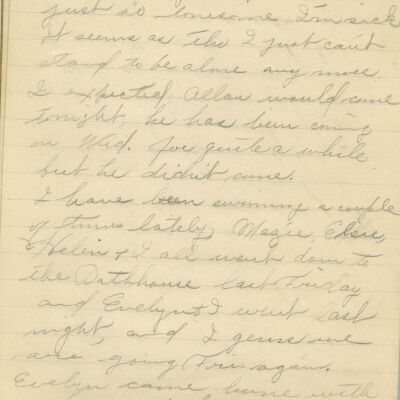 just so lonesome I'm sick
It seems as tho I just can't
stand to be alone any more.
I expected Allan would come
tonight, he has been coming
on Wed. for quite a while
but he didn't come.
I have been swimming a couple
of times lately, Mazie, Elsie,
Helen + I all went down to
the Bathhouse last Friday
and Evelyn + I went last
night, and I guess we
are going Fri. again.
Evelyn came home with